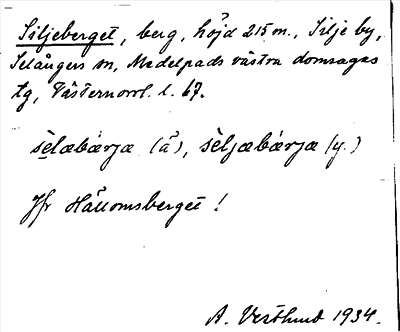 Siljeberget, berg, höjd 215 m., Silje by,
Selångers sn, Medelpads västra domsagas
tg, Västernorrl. l. 67.
sèlæbǽrjæ (ä), sèljæbǽrjæ (y.)
Jfr Hällomsberget!
A. Vestlund 1934.